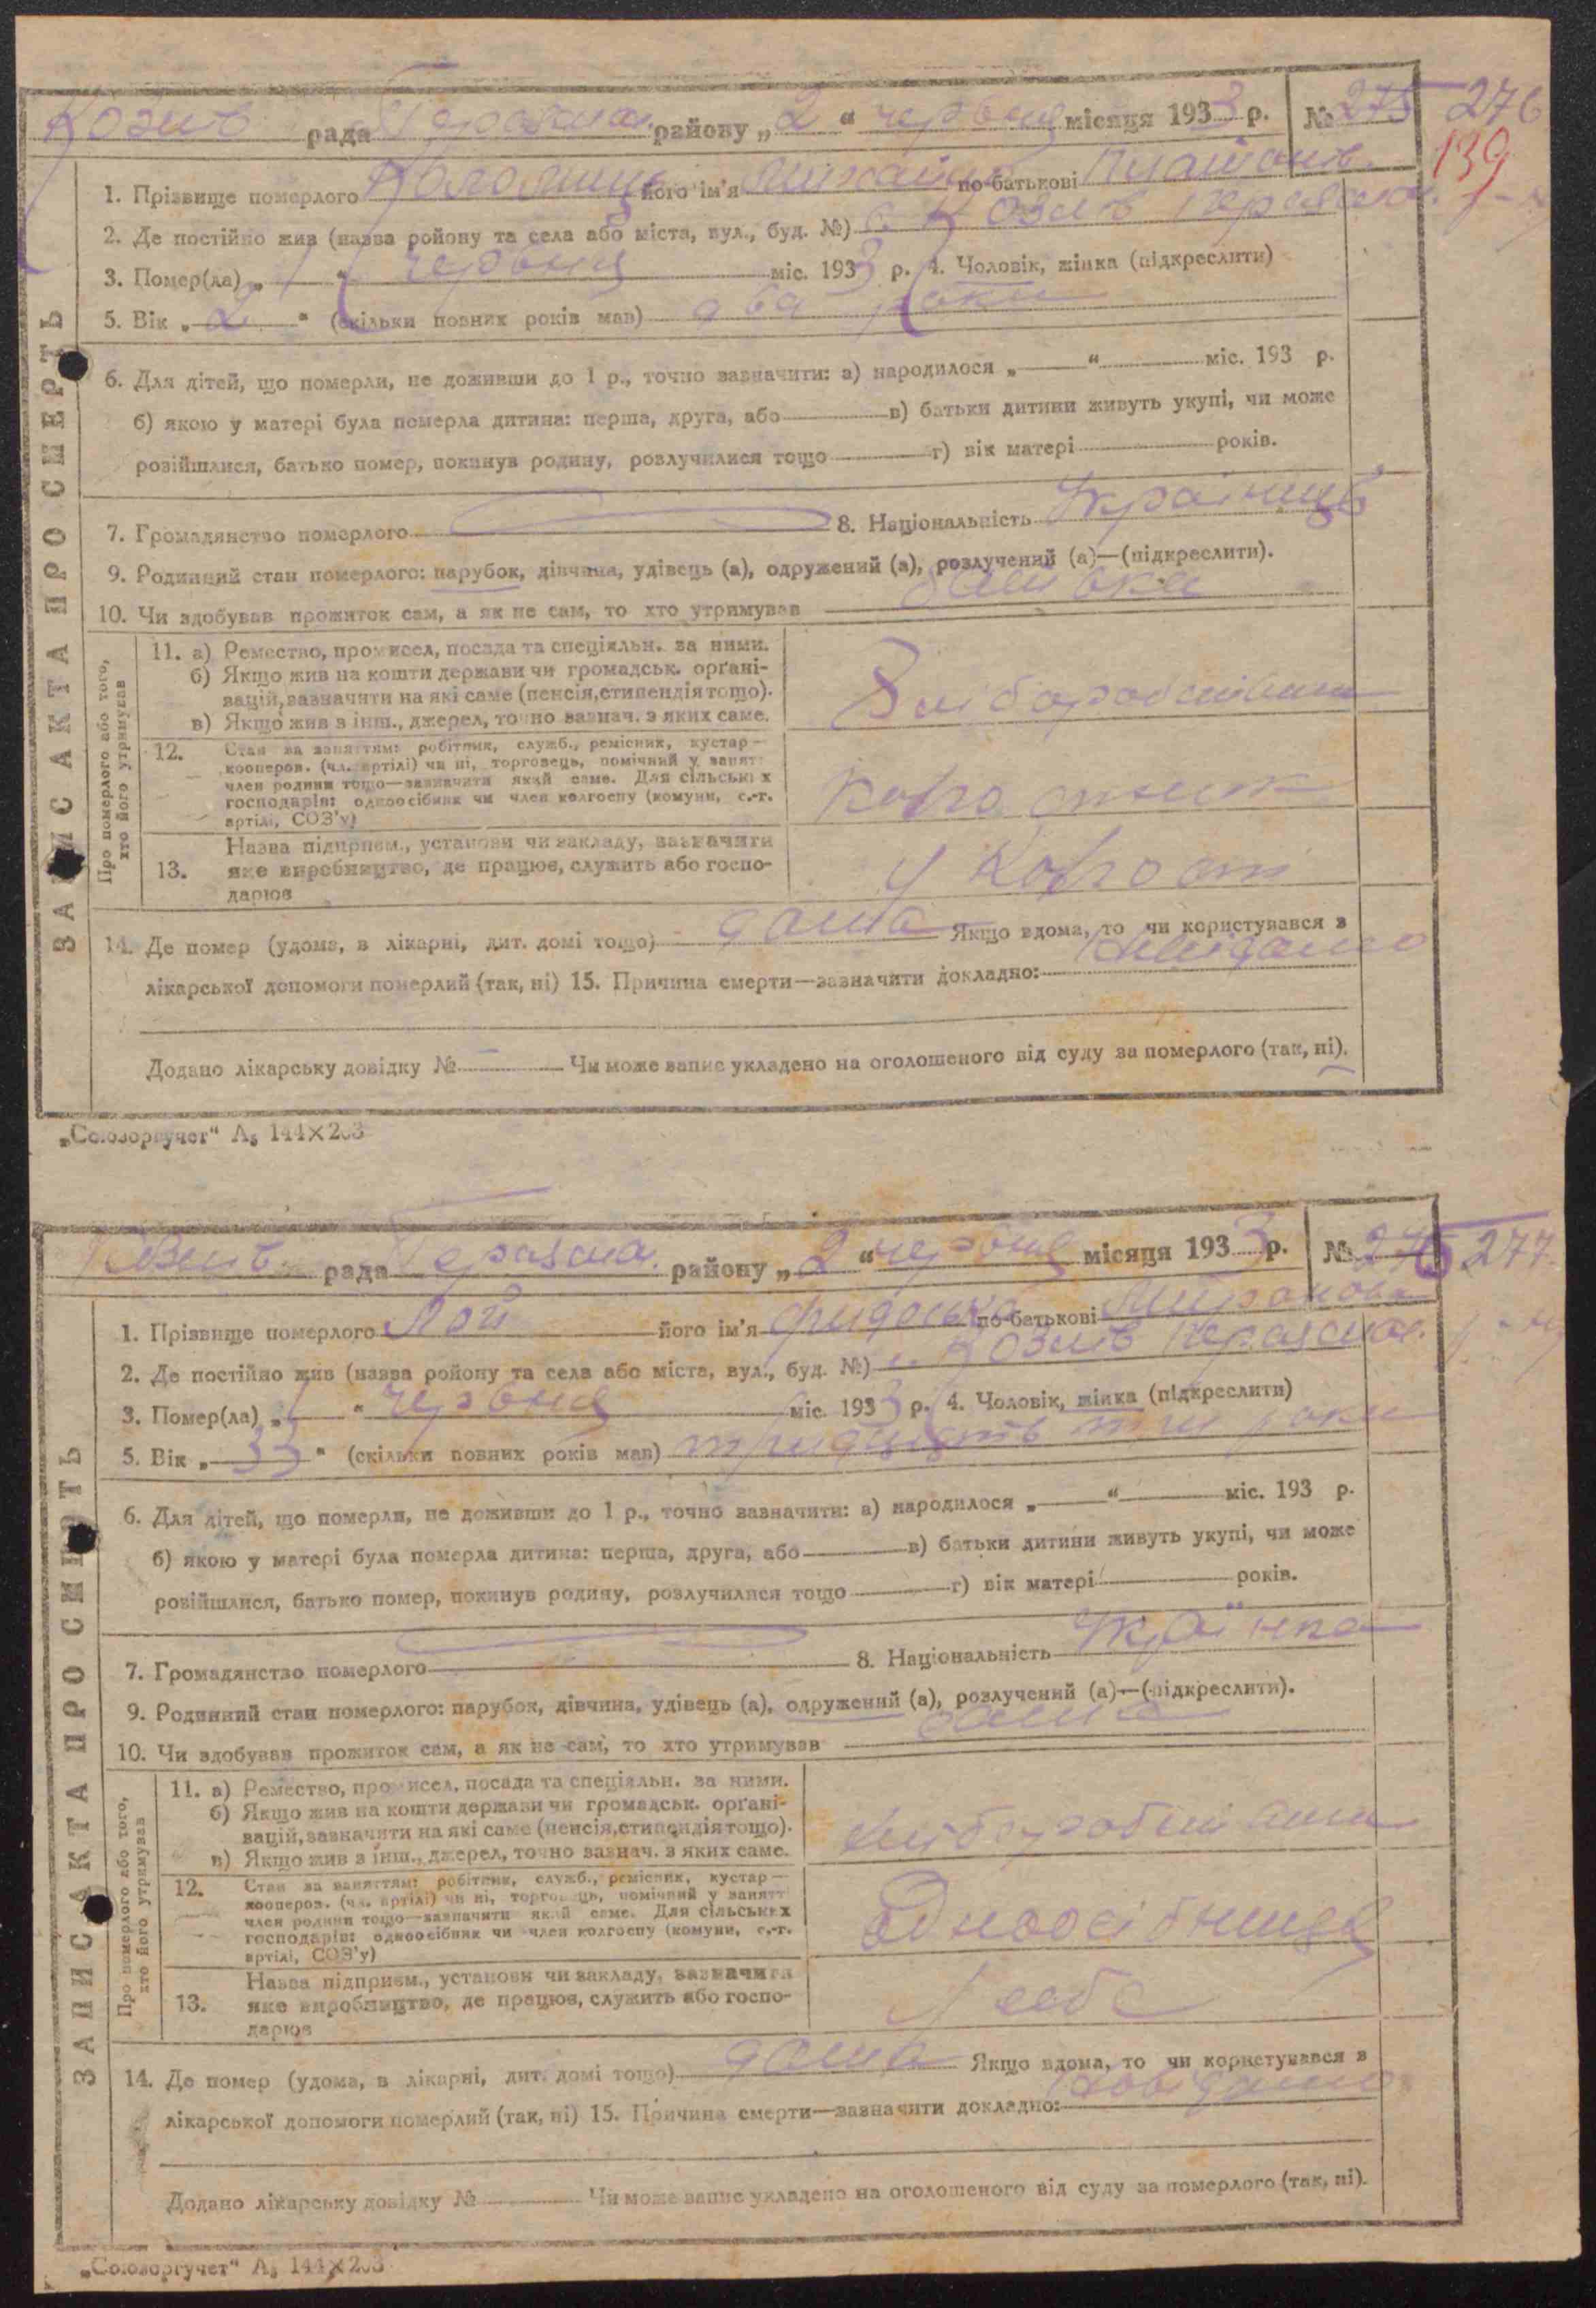 Козин рада району „2“ червня місяця 1933 р. № 275 276
139
1. Прізвище померлого Коломиєць його ім'я Михайло по-батькові Платонов.
2. Де постійно жив (назва ройону та села або міста, вул., буд. №) с. Козин
3. Помер(ла) „1“ червня міс. 1933 р. 4. Чоловік, жінка (підкреслити)
5. Вік „2“ (скільки повних років мав) два роки
6. Для дітей, що померли, не доживши до 1 р., точно зазначити: а) народилося „ “ міс. 193 р.
б) якою у матері була померла дитина: перша, друга, або в) батьки дитини живуть укупі, чи може
розійшлися, батько помер, покинув родину, розлучилися тощо г) вік матері років.
7. Громадянство померлого 8. Національність Українець
9. Родинний стан померлого: парубок, дівчина, удівець (а), одружений (а), розлучений (а)—(підкреслити).
10. Чи здобував прожиток сам, а як не сам, то хто утримував батьки
ЗАПИС АКТА ПРО СМЕРТЬ
Про померлого або того, хто його утримував
11. а) Ремество, промисел, посада та спеціяльн. за ними.
б) Якщо жив на кошти держави чи громадськ. орґані-
зацій, зазначити на які саме (пенсія, стипендія тощо).
в) Якщо жив з інш., джерел, точно зазнач. з яких саме.
12. Стан за заняттям: робітник, служб., ремісник, кустар—
кооперов. (чл. артілі) чи ні, торговець, помічний у занят:
член родини тощо—зазначити який саме. Для сільських
господарів: одноосібник чи член колгоспу (комуни, с.-г.
артілі, СОЗ'у)
колгоспник
13. Назва підприєм., установи чи закладу, зазначити
яке виробництво, де працює, служить або госпо-
дарює
у колгоспі
14. Де помер (удома, в лікарні, дит. домі тощо) дома Якщо вдома, то чи користувався з
лікарської допомоги померлий (так, ні) 15. Причина смерти—зазначити докладно: невідомо
Додано лікарську довідку № Чи може запис укладено на оголошеного від суду за померлого (так, ні).
„Союзоргучет“ А5 144×203
Козин рада району „2“ червня місяця 1933 р. № 276 277
1. Прізвище померлого Лой його ім'я по-батькові Миронова
2. Де постійно жив (назва ройону та села або міста, вул., буд. №) с. Козин
3. Помер(ла) „1“ червня міс. 1933 р. 4. Чоловік, жінка (підкреслити)
5. Вік „33“ (скільки повних років мав) тридцять три роки
6. Для дітей, що померли, не доживши до 1 р., точно зазначити: а) народилося „ “ міс. 193 р.
б) якою у матері була померла дитина: перша, друга, або в) батьки дитини живуть укупі, чи може
розійшлися, батько помер, покинув родину, розлучилися тощо г) вік матері років.
7. Громадянство померлого 8. Національність Українка
9. Родинний стан померлого: парубок, дівчина, удівець (а), одружений (а), розлучений (а)—(підкреслити).
10. Чи здобував прожиток сам, а як не сам, то хто утримував сама
ЗАПИС АКТА ПРО СМЕРТЬ
Про померлого або того, хто його утримував
11. а) Ремество, промисел, посада та спеціяльн. за ними.
б) Якщо жив на кошти держави чи громадськ. орґані-
зацій, зазначити на які саме (пенсія, стипендія тощо).
в) Якщо жив з інш., джерел, точно зазнач. з яких саме.
12. Стан за заняттям: робітник, служб., ремісник, кустар—
кооперов. (чл. артілі) чи ні, торговець, помічний у занятт
член родини тощо—зазначити який саме. Для сільських
господарів: одноосібник чи член колгоспу (комуни, с.-г.
артілі, СОЗ'у)
Одноосібниця
13. Назва підприєм., установи чи закладу, зазначити
яке виробництво, де працює, служить або госпо-
дарює
У себе
14. Де помер (удома, в лікарні, дит. домі тощо) дома Якщо вдома, то чи користувався з
лікарської допомоги померлий (так, ні) 15. Причина смерти—зазначити докладно:
Додано лікарську довідку № Чи може запис укладено на оголошеного від суду за померлого (так, ні).
„Союзоргучет“ А5 144×203